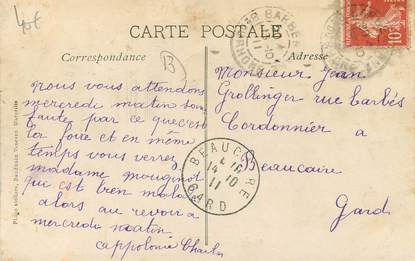 40€
CARTE POSTALE
Correspondance
Adresse
B
nous vous attendons
mercredi matin son
faute par ce que c'est
lor foire et en même
temps vous verrez
madame mouginot
qui est bien mala
alors au revoir a
mercredi matin
appolonie Charlin
Monsieur Jean
Grollinger rue barbés
Cordonnier a
Beaucaire
Gard
BEAUCAIRE
14 - 10
11
GARD
BARBEN
RHÔNE
10